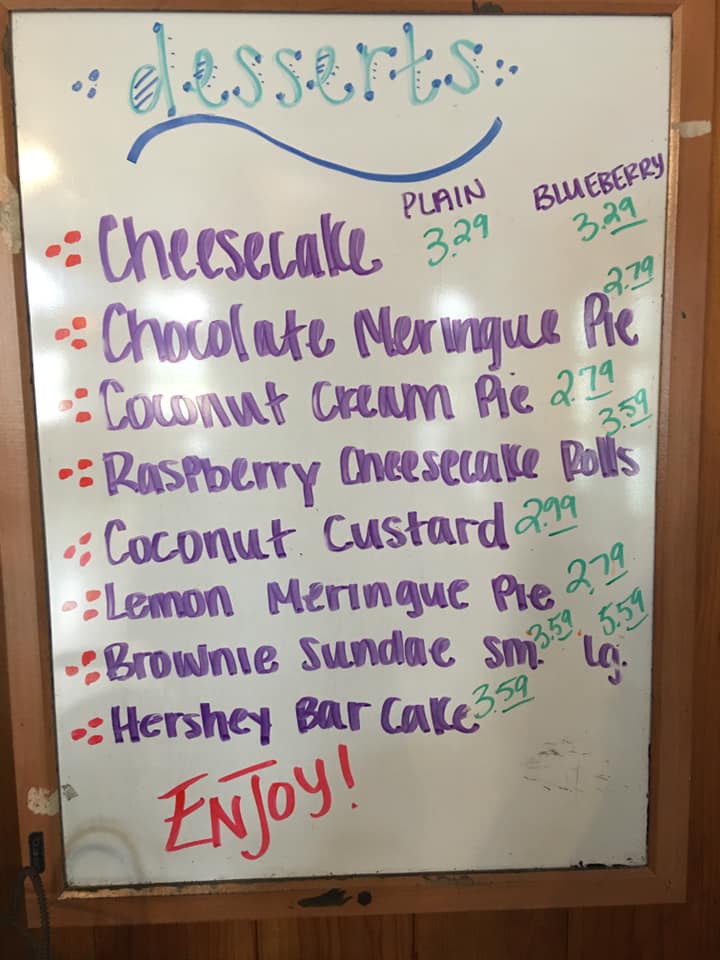 desserts
PLAIN BLUEBERRY
Cheesecake 3.29 3.29
Chocolate Meringue Pie 2.79
Coconut Cream Pie 2.79
Raspberry Cheesecake Rolls 3.59
Coconut Custard 2.99
Lemon Meringue Pie 2.79
Brownie Sundae Sm. 3.59 Lg. 5.59
Hershey Bar Cake 3.59
ENJOY!